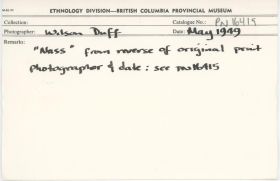 ETHNOLOGY DIVISION—BRITISH COLUMBIA PROVINCIAL MUSEUM
Collection: Catalogue No.: PN 16419
Photographer: Wilson Duff Date: May 1949
Remarks:
"Nass" from reverse of original print
photographer & date: see PN16415